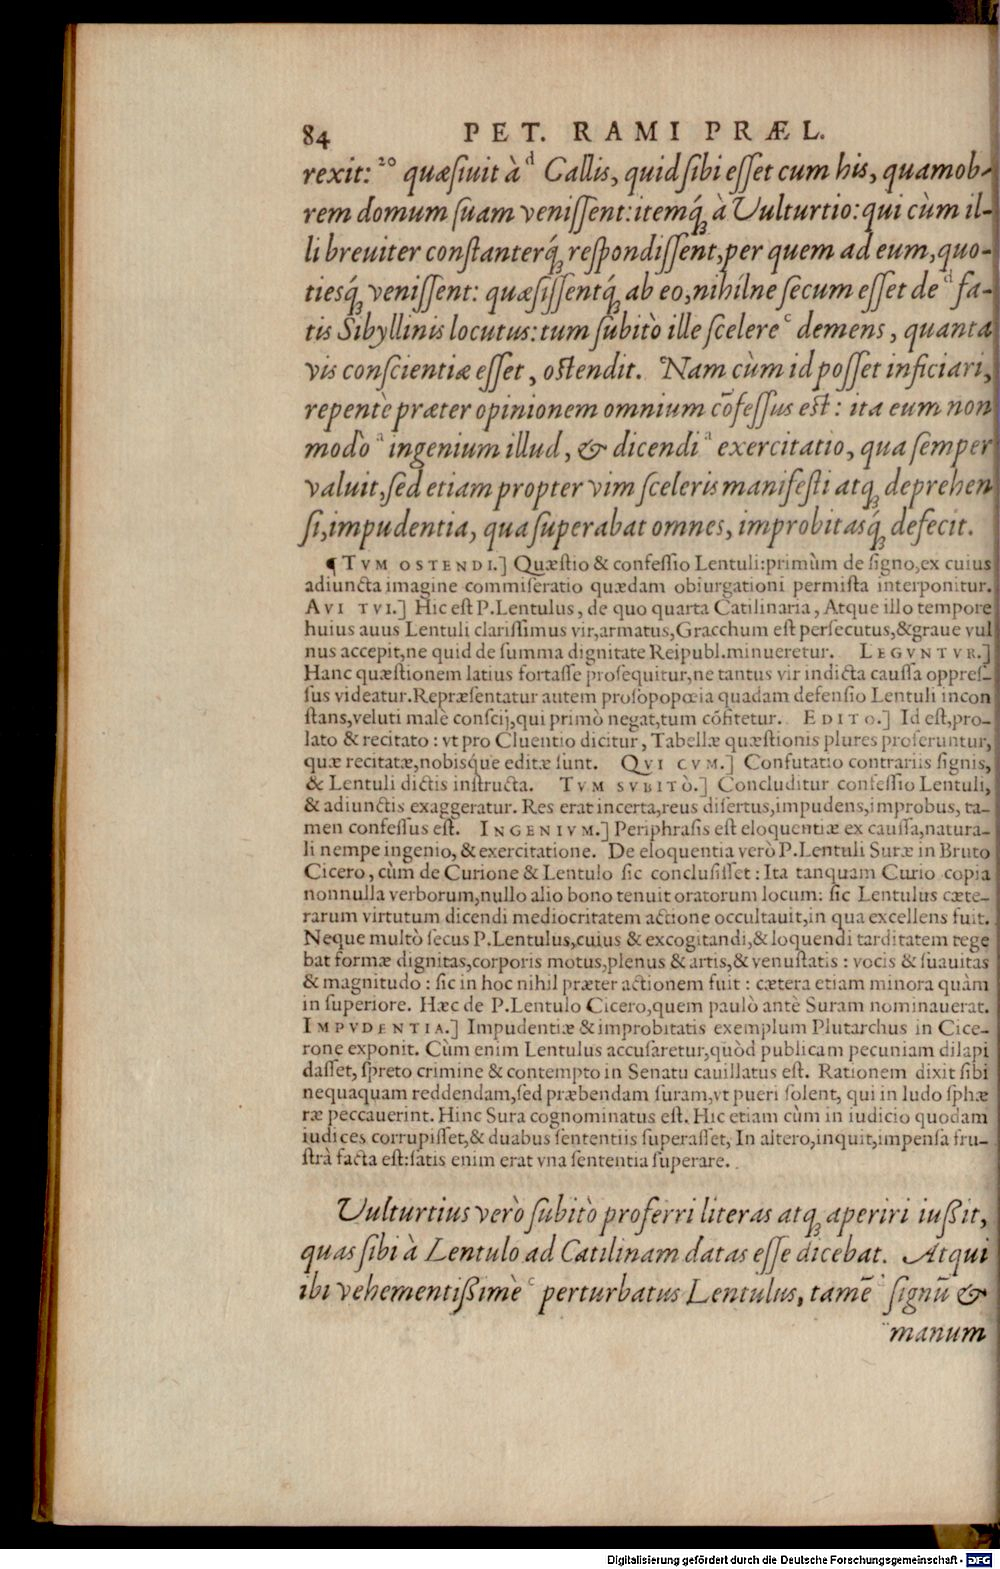 84 PET. RAMI PRÆL.
rexit: ²⁰ quæſiuit à ᵈ Gallis, quid ſibi eſſet cum his, quamob-
rem domum ſuam veniſſent: itemq́ꝫ à Vulturtio: qui cùm il-
li breuiter conſtanterq́ꝫ reſpondiſſent, per quem ad eum, quo-
tiesq́ꝫ veniſſent: quæſiſſentq́ꝫ ab eo, nihílne ſecum eſſet de ᵈ fa-
tis Sibyllinis locutus: tum ſubitò ille ſcelere ᶜ demens, quanta
vis conſcientiæ eſſet, oſtendit. ᶜ Nam cùm id poſſet inficiari,
repentè præter opinionem omnium cōfeſſus eſt: ita eum non
modò ᵃ ingenium illud, & dicendi ᵃ exercitatio, qua ſemper
valuit, ſed etiam propter vim ſceleris manifeſti atqꝫ deprehen
ſi, impudentia, qua ſuperabat omnes, improbitasq́ꝫ defecit.
¶ TVM OSTENDI.] Quæſtio & confeſſio Lentuli: primùm de ſigno, ex cuius
adiuncta imagine commiſeratio quædam obiurgationi permiſta interponitur.
AVI TVI.] Hic eſt P. Lentulus, de quo quarta Catilinaria, Atque illo tempore
huius auus Lentuli clariſſimus vir, armatus, Gracchum eſt perſecutus, & graue vul
nus accepit, ne quid de ſumma dignitate Reipubl. minueretur. LEGVNTVR.]
Hanc quæſtionem latius fortaſſe proſequitur, ne tantus vir indicta cauſſa oppreſ-
ſus videatur. Repræſentatur autem proſopopœia quadam defenſio Lentuli incon
ſtans, veluti malè conſcij, qui primò negat, tum cōfitetur. EDITO.] Id eſt, pro-
lato & recitato: vt pro Cluentio dicitur, Tabellæ quæſtionis plures proferuntur,
quæ recitatæ, nobisque editæ ſunt. QVI CVM.] Confutatio contrariis ſignis,
& Lentuli dictis inſtructa. TVM SVBITÒ.] Concluditur confeſſio Lentuli,
& adiunctis exaggeratur. Res erat incerta, reus diſertus, impudens, improbus, ta-
men confeſſus eſt. INGENIVM.] Periphraſis eſt eloquentiæ ex cauſſa, natura-
li nempe ingenio, & exercitatione. De eloquentia verò P. Lentuli Suræ in Bruto
Cicero, cùm de Curione & Lentulo ſic concluſiſſet: Ita tanquam Curio copia
nonnulla verborum, nullo alio bono tenuit oratorum locum: ſic Lentulus cæte-
rarum virtutum dicendi mediocritatem actione occultauit, in qua excellens fuit.
Neque multò ſecus P. Lentulus, cuius & excogitandi, & loquendi tarditatem tege
bat formæ dignitas, corporis motus, plenus & artis, & venuſtatis: vocis & ſuauitas
& magnitudo: ſic in hoc nihil præter actionem fuit: cætera etiam minora quàm
in ſuperiore. Hæc de P. Lentulo Cicero, quem paulò antè Suram nominauerat.
IMPVDENTIA.] Impudentiæ & improbitatis exemplum Plutarchus in Cice-
rone exponit. Cùm enim Lentulus accuſaretur, quòd publicam pecuniam dilapi
daſſet, ſpreto crimine & contempto in Senatu cauillatus eſt. Rationem dixit ſibi
nequaquam reddendam, ſed præbendam ſuram, vt pueri ſolent, qui in ludo ſphæ
ræ peccauerint. Hinc Sura cognominatus eſt. Hic etiam cùm in iudicio quodam
iudices corrupiſſet, & duabus ſententiis ſuperaſſet, In altero, inquit, impenſa fru-
ſtrà facta eſt: ſatis enim erat vna ſententia ſuperare.
Vulturtius verò ſubitò proferri literas atqꝫ aperiri iußit,
quas ſibi à Lentulo ad Catilinam datas eſſe dicebat. Atqui
ibi vehementißimè ᶜ perturbatus Lentulus, tamē ſignū &
manum
Digitalisierung gefördert durch die Deutsche Forschungsgemeinschaft - DFG